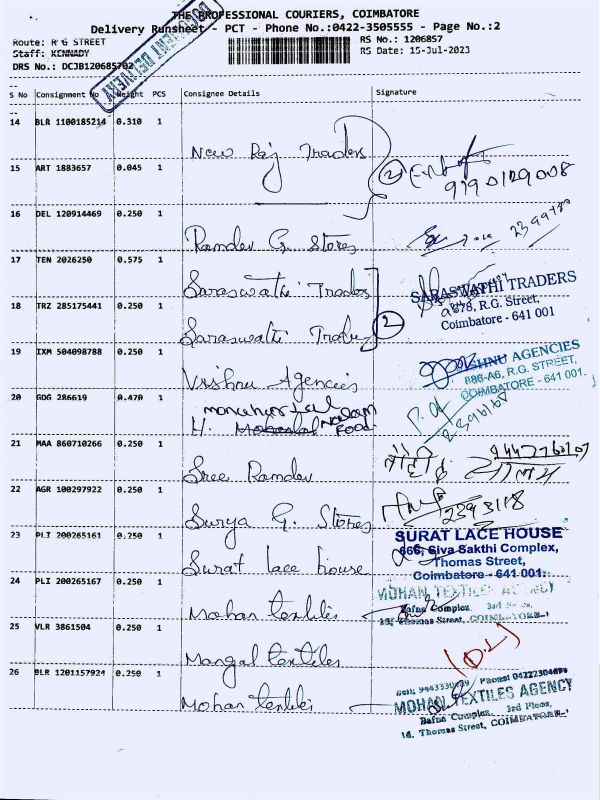 THE PROFESSIONAL COURIERS, COIMBATORE
Delivery Runsheet - PCT - Phone No.:0422-3505555 - Page No.:2
Route: R G STREET
Staff: KENNADY
DRS No.: DCJB120685702
RS No.: 1206857
RS Date: 15-Jul-2023
S No Consignment No Weight PCS Consignee Details Signature
14 BLR 1100185214 0.310 1
New Raj Traders
15 ART 1883657 0.045 1
2
9190129008
16 DEL 120914469 0.250 1
Ramdev G. Stores
17 TEN 2026250 0.575 1
Saraswathi Traders
SARASWATHI TRADERS
878, R.G. Street,
Coimbatore - 641 001
18 TRZ 285175441 0.250 1
Saraswathi Traders
2
19 IXM 504098788 0.250 1
Vishnu Agencies
VISHNU AGENCIES
886-A6, R.G. STREET,
COIMBATORE - 641 001.
20 GDG 286619 0.470 1
manoharlal
H. Nalam
Food
21 MAA 860710266 0.250 1
Sree Ramdev
22 AGR 100297922 0.250 1
Surya G. Stores
23 PLI 200265161 0.250 1
Surat lace house
SURAT LACE HOUSE
666, Siva Sakthi Complex,
Thomas Street,
Coimbatore - 641 001.
24 PLI 200265167 0.250 1
Mohan textiles
MOHAN TEXTILES AGENCY
Bafna Complex, 3rd Floor,
Thomas Street, COIMBATORE-1
25 VLR 3861504 0.250 1
Mangal textiles
(D.L)
26 BLR 1201157924 0.250 1
Mohan textiles
Phone: 04222304699
MOHAN TEXTILES AGENCY
Bafna Complex, 3rd Floor,
16, Thomas Street, COIMBATORE-1